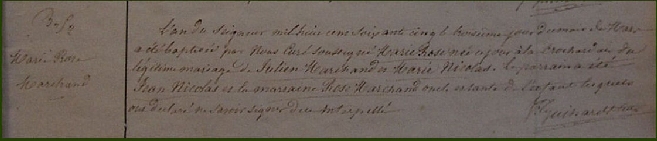 Marie Rose
Marchand
L'an du Seigneur mil huit cent soixante cinq le troisième jour du mois de Mars
a été baptisée par Nous Curé soussigné Marie Rose née ce jour à la du
légitime mariage de Julien Marchand et Marie Nicolas. Le parrain a été
Jean Nicolas et la marraine Rose Marchand oncle et tante de l'enfant lesquels
ont déclaré ne savoir signer de ce interpellé
Guihard